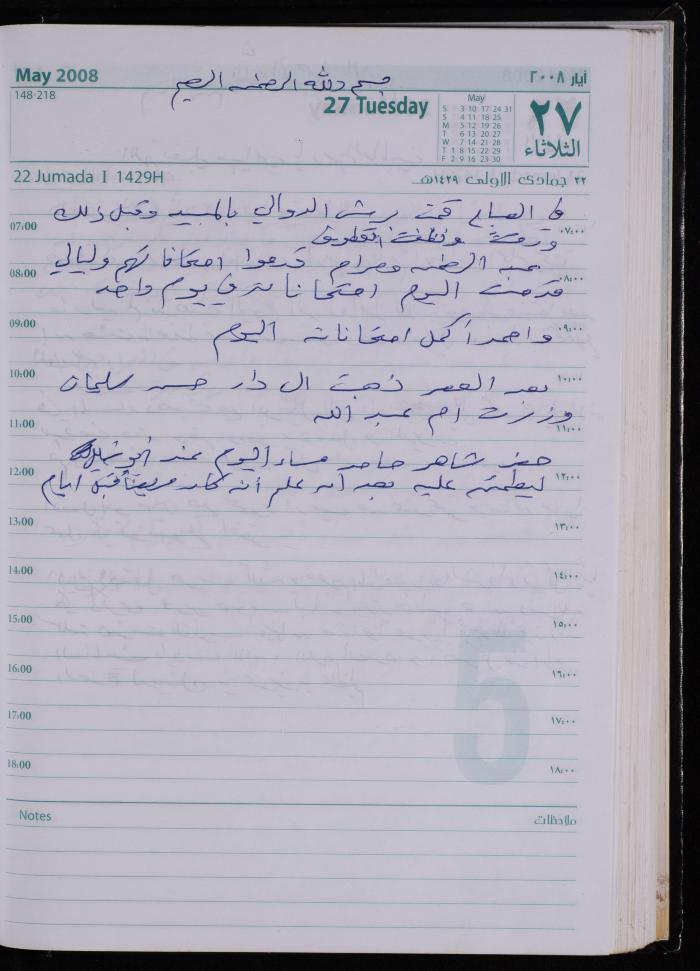 May 2008
أيار ٢٠٠٨
بسم الله الرحمن الرحيم
148-218
27 Tuesday
May
S 3 10 17 24 31
S 4 11 18 25
M 5 12 19 26
T 6 13 20 27
W 7 14 21 28
T 1 8 15 22 29
F 2 9 16 23 30
٢٧
الثلاثاء
22 Jumada I 1429H
٢٢ جمادى الاولى ١٤٢٩هـ
في الصباح قمت برش الدوالي بالمبيد وقبل ذلك
07:00 ٠٧:٠٠
ونظفت
عبد الرحمن ومرام قدموا امتحاناتهم وليالي
08:00 ٠٨:٠٠
قدمت اليوم امتحانا في يوم واحد
09:00 ٠٩:٠٠
واحمد أكمل امتحاناته اليوم
10:00 ١٠:٠٠
بعد العصر ذهبت الى دار حسن سليمان
وزرت ام عبد الله
11:00 ١١:٠٠
حضر شاهر حامد مساء اليوم عند ابو
12:00 ١٢:٠٠
ليطمئن عليه بعد أن علم أنه كان مريضا قبل ايام
13:00 ١٣:٠٠
14:00 ١٤:٠٠
15:00 ١٥:٠٠
16:00 ١٦:٠٠
17:00 ١٧:٠٠
18:00 ١٨:٠٠
5
Notes
ملاحظات